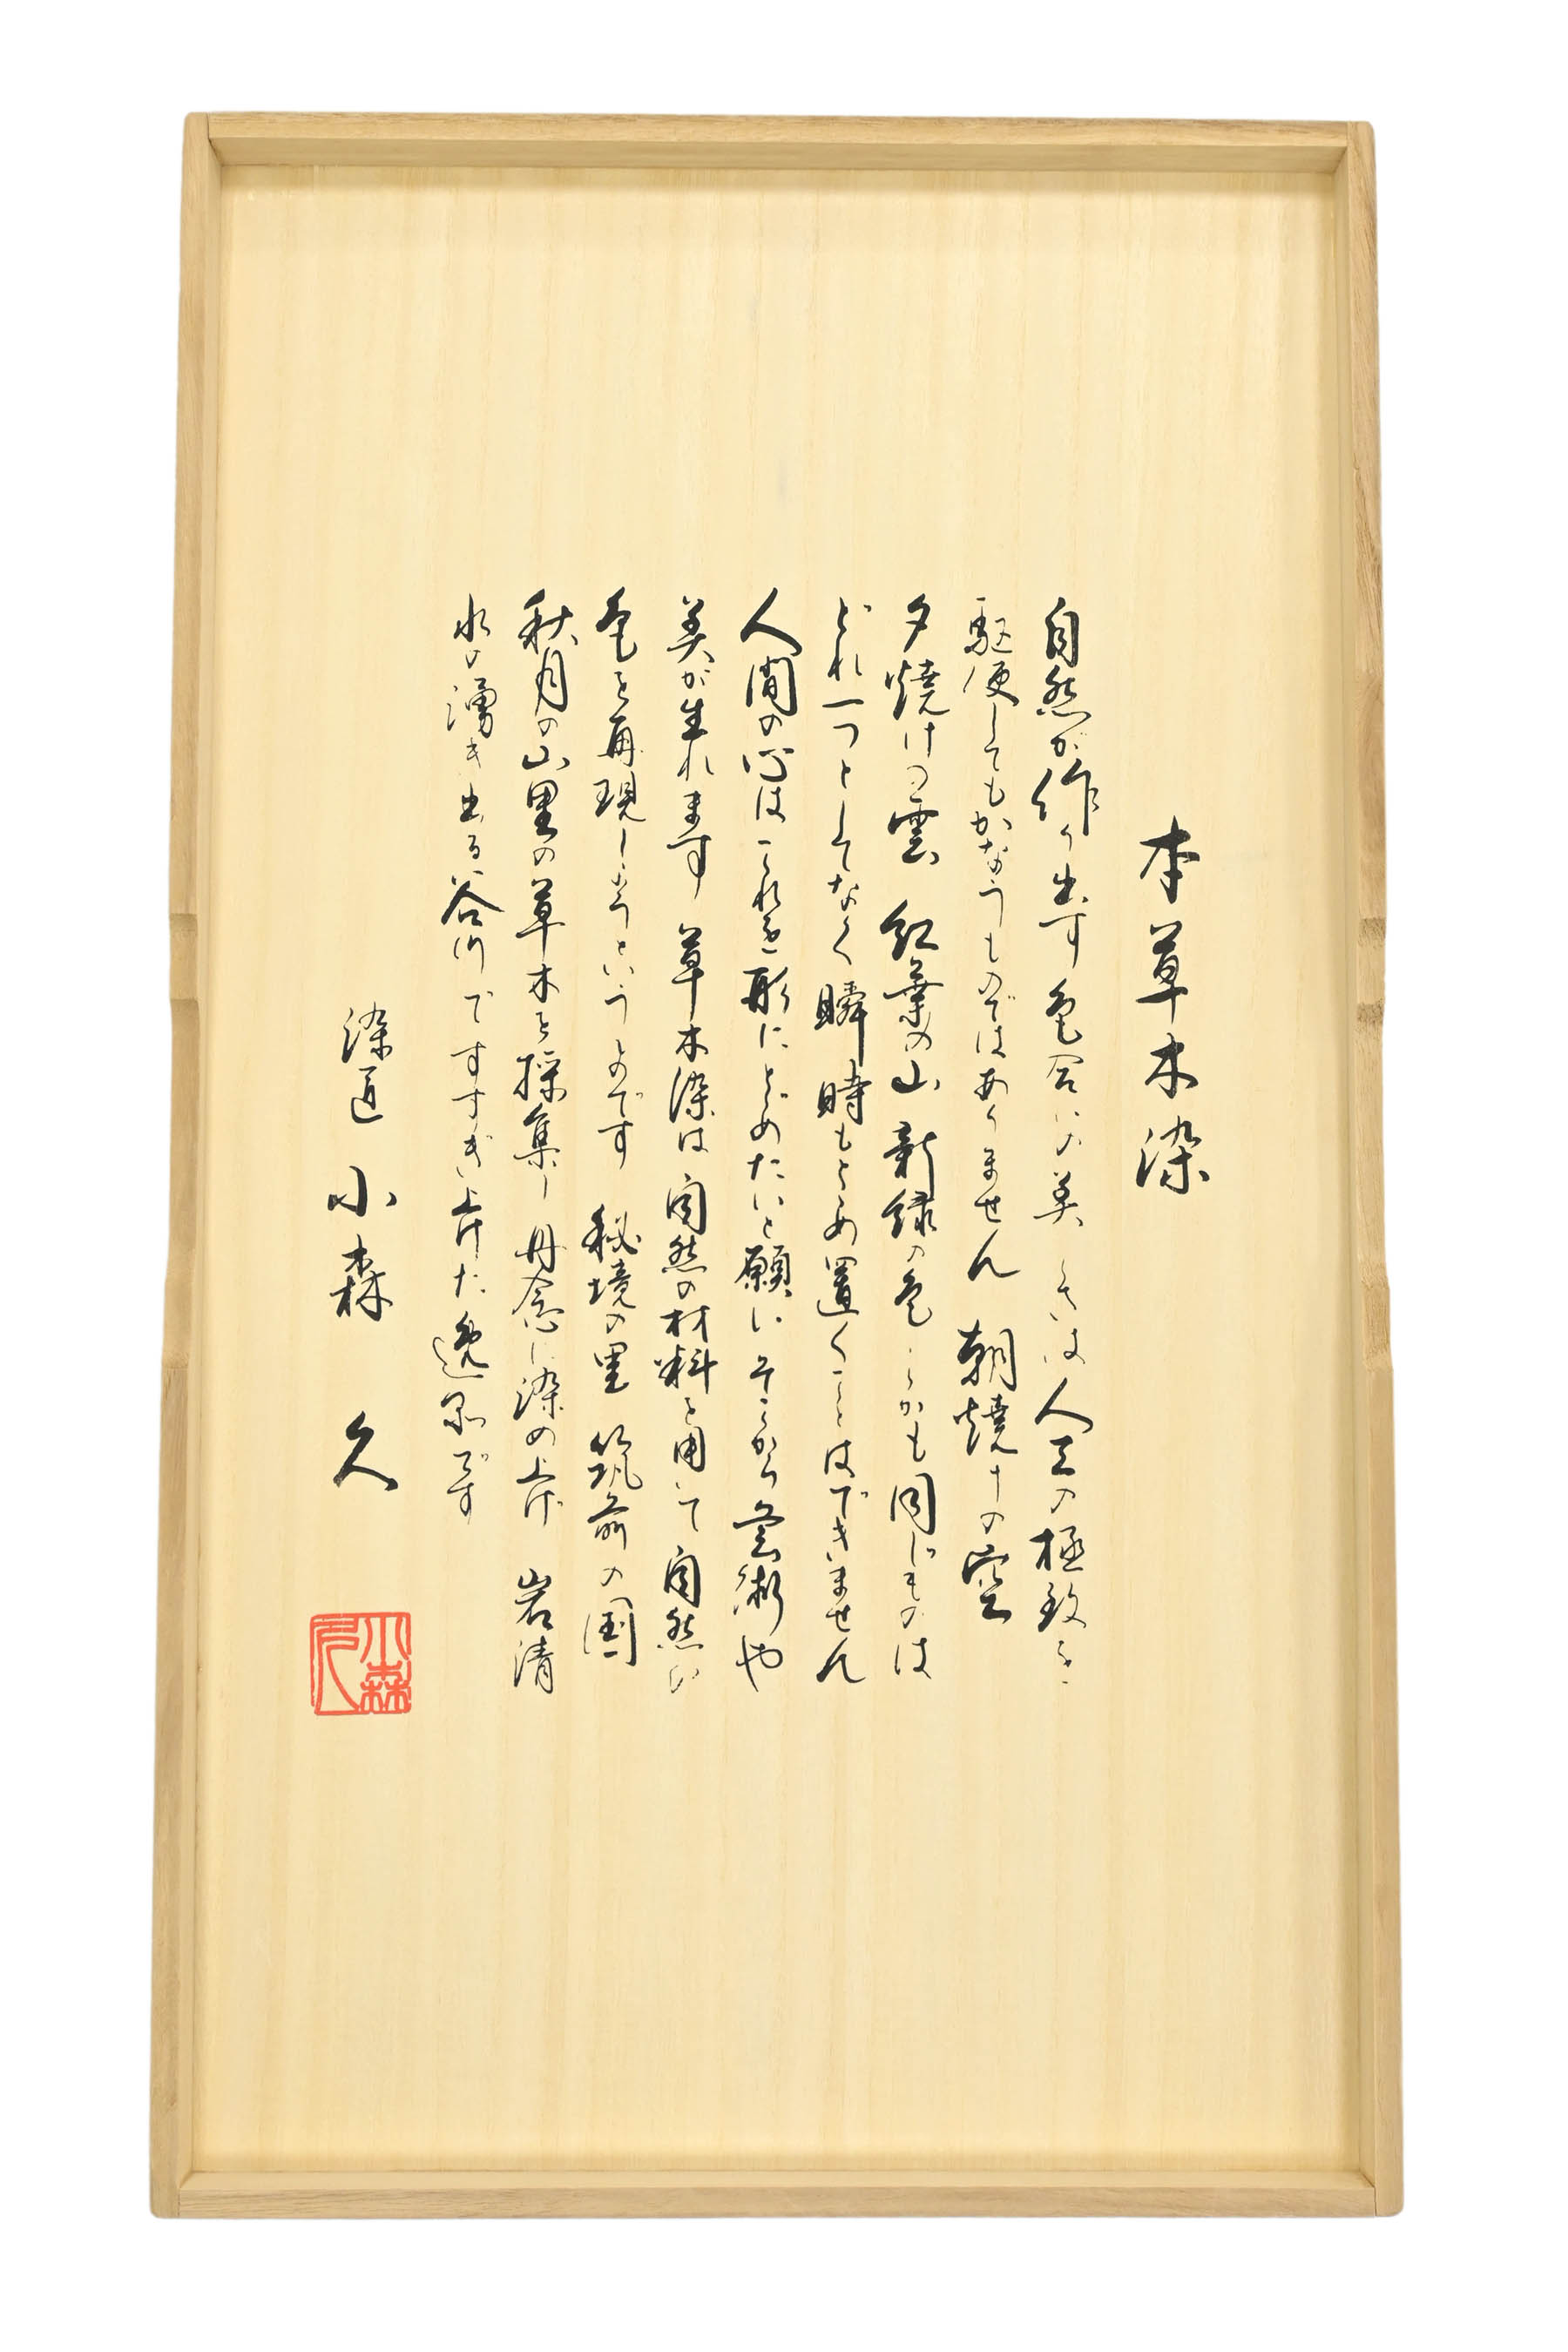 本草木染
自然が作り出す色合いの美しさは人工の極致を
駆使してもかなうものではありません 朝焼けの空
夕焼けの雲 紅葉の山 新緑の色 しかも同じものは
どれ一つとしてなく瞬時もとめ置くことはできません
人間の心はこれを形にとどめたいと願い そこから芸術や
美が生れます 草木染は自然の材料を用いて自然が
色を再現しようというものです 秘境の里 筑前の国
秋月の山里の草木を採集し丹念に染め上げ 岩清
水の湧き出る谷川ですすぎ上げた逸品です
染匠 小森 久
小森久